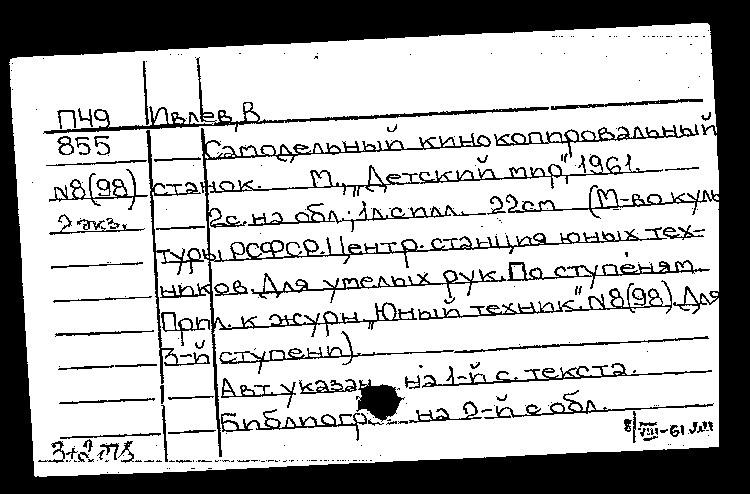 П49 Ивлев, В
855 Самодельный кинокопировальный
N8(98) станок. М., „Детский мир", 1961.
2 экз. 2с. на обл.; 1л. илл. 22см (М-во куль
туры РСФСР. Центр. станция юных тех-
ников. Для умелых рук. По ступеням.
Прил. к журн. „Юный техник". N8(98). Для
3-й ступени).
Авт. указан на 1-й с. текста.
Библиогр. на 2-й с обл.
8/VIII-61
3+2